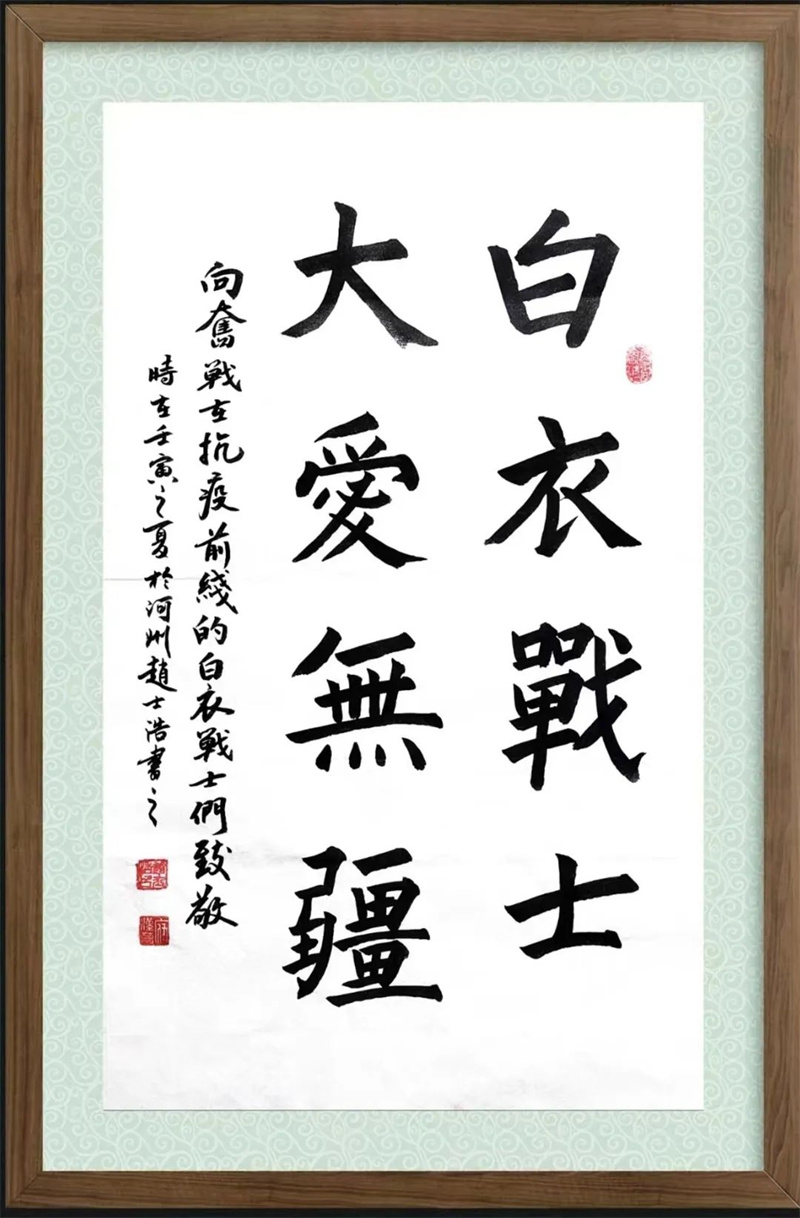 白衣戰士
大愛無疆
向奮戰在抗疫前綫的白衣戰士們致敬
時在壬寅之夏於河州趙士浩書之